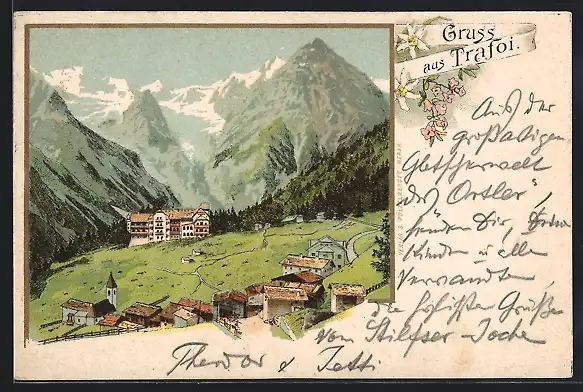 Gruss
aus Trafoi.
Aus der
großartigen
Gletscherwelt
des Ortler"
senden Dir, Deine
Kinder u alle
Verwandte
die höchsten Grüße
vom Stilfser-Joche
Theodor & Tetti